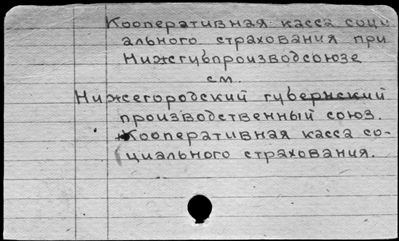 Кооперативная касса соци
ального страхования при
Нижгубпроизводсоюзе
см.
Нижегородский губернский
производственный союз.
Кооперативная касса со-
циального страхования.